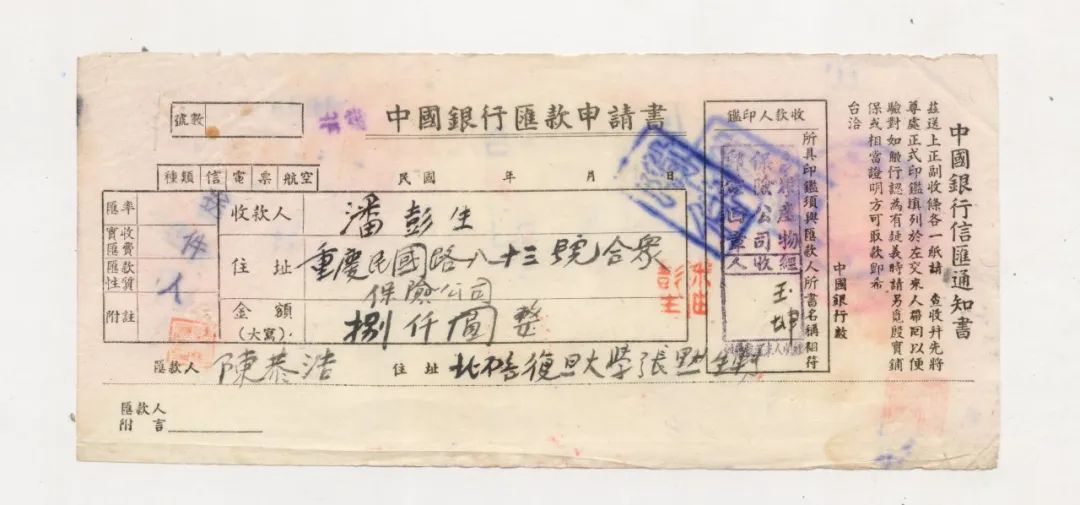 中國銀行匯款申請書
號數
種類 信 電 票 航空
民國 年 月 日
匯率
實收匯費
匯款性質
附註
收款人 潘彭生
住址 重慶民國路八十三號合眾
保險公司
金額(大寫) 捌仟圓整
匯款人 陳恭浩 住址 北碚復旦大學張
匯款人
附言
收款人印鑑
所具印鑑須與匯款人所書名稱相符
產物
保險公司
收
中國銀行信匯通知書
茲送上正副收條各一紙請 查收幷先將
尊處正式印鑑填列於左交來人帶回以便
驗對如敝行認為有疑義時請另覓殷實鋪
保或相當證明方可取款卽希
台洽
中國銀行啟